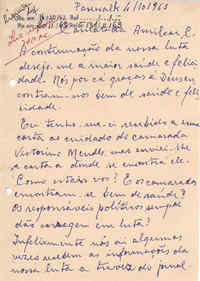 Pasewalk 4/10/1963
Camarada Amílcar C.
A continuação da nossa luta
desejo-me a maior saúde e felici
dade. Nós por cá graças a Deus en
contram-nos bem de saúde e feli
cidade.
Eu tenho-me recebido a uma
carta ao cuidado do camarada
Victorino Mendes, mas enviei-lhe
a carta a donde se encontra ele.
Como estais vós? E os camaradas
encontram-se bem de saúde?
Os responsáveis políticos sempre
dão coragem em luta?
Infelizmente nós só algumas
vezes vedem as informações da
nossa luta a través do jornal.